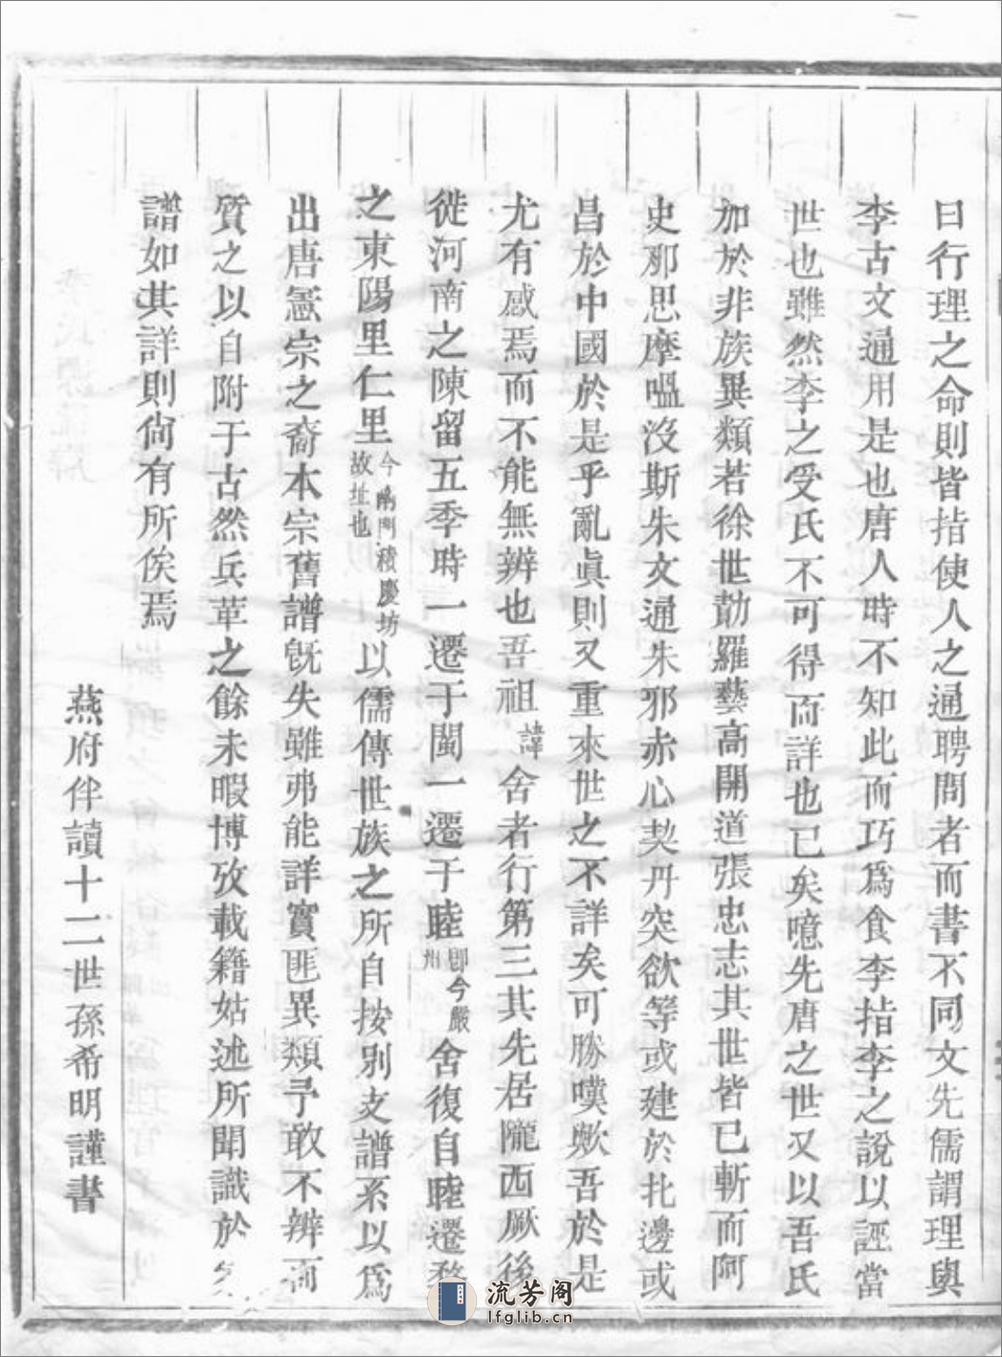 曰行理之命則皆指使人之通聘問者而書不同文先儒謂理與
李古文通用是也唐人時不知此而巧爲食李指李之說以誣當
世也雖然李之受氏不可得而詳也已矣噫先唐之世又以吾氏
加於非族異類若徐世勣羅藝高開道張忠志其世皆已斬而阿
史那思摩嗢沒斯朱文通朱邪赤心契丹突欲等或建於北邊或
昌於中國於是乎亂眞則又重來世之不詳矣可勝嘆歟吾於是
尤有感焉而不能無辨也吾祖諱舍者行第三其先居隴西厥後
徙河南之陳留五季時一遷于閩一遷于睦卽今嚴州舍復自睦遷婺
之東陽里仁里今南門積慶坊故址也以儒傳世族之所自按別支譜系以爲
出唐憲宗之裔本宗舊譜旣失雖弗能詳實匪異類予敢不辨而
質之以自附于古然兵革之餘未暇博攷載籍姑述所聞識於
譜如其詳則尙有所俟焉
燕府伴讀十二世孫希明謹書
流芳阁
lfglib.cn